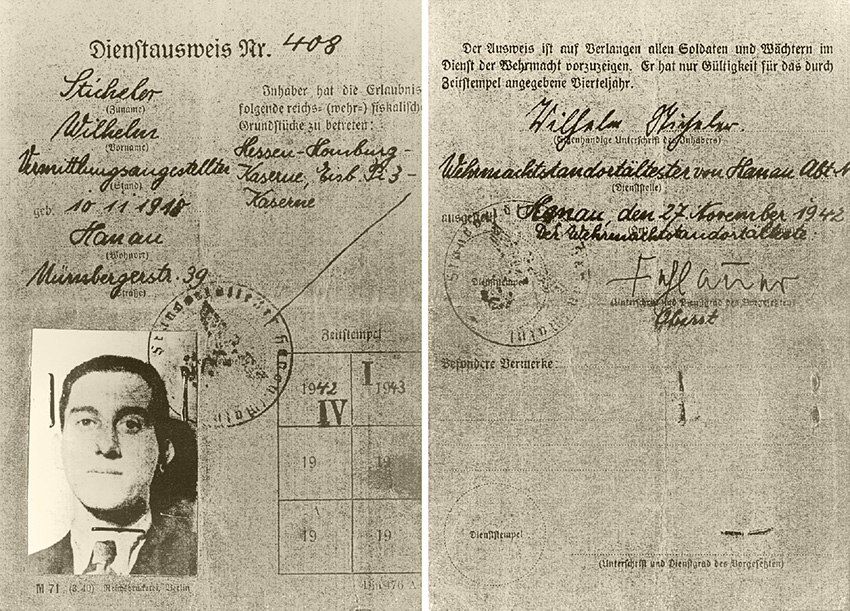 Dienstausweis Nr. 408
Sticheler
(Zuname)
Wilhelm
(Vorname)
Vermittlungsangestellter
(Stand)
geb. 10 11 1918
Hanau
(Wohnort)
Nürnbergerstr. 39
(Straße)
Inhaber hat die Erlaubnis
folgende reichs- (wehr-) fiskalische
Grundstücke zu betreten:
Hessen-Homburg-
Kaserne, Eisb. Pi 3-
Kaserne
Zeitstempel
1942 I 1943
IV
19 19
19 19
M 71 (8. 40) Reichsdruckerei, Berlin
Din 476 A
Der Ausweis ist auf Verlangen allen Soldaten und Wächtern im
Dienst der Wehrmacht vorzuzeigen. Er hat nur Gültigkeit für das durch
Zeitstempel angegebene Vierteljahr.
Wilhelm Sticheler.
(Eigenhändige Unterschrift des Inhabers)
Wehrmachtstandortältester von Hanau Abt.
(Dienststelle)
ausgestellt Hanau, den 27. November 1942
Der Wehrmachtstandortälteste.
Dienststempel
(Unterschrift und Dienstgrad des Vorgesetzten)
Oberst
Besondere Vermerke:
Dienststempel
(Unterschrift und Dienstgrad des Vorgesetzten)